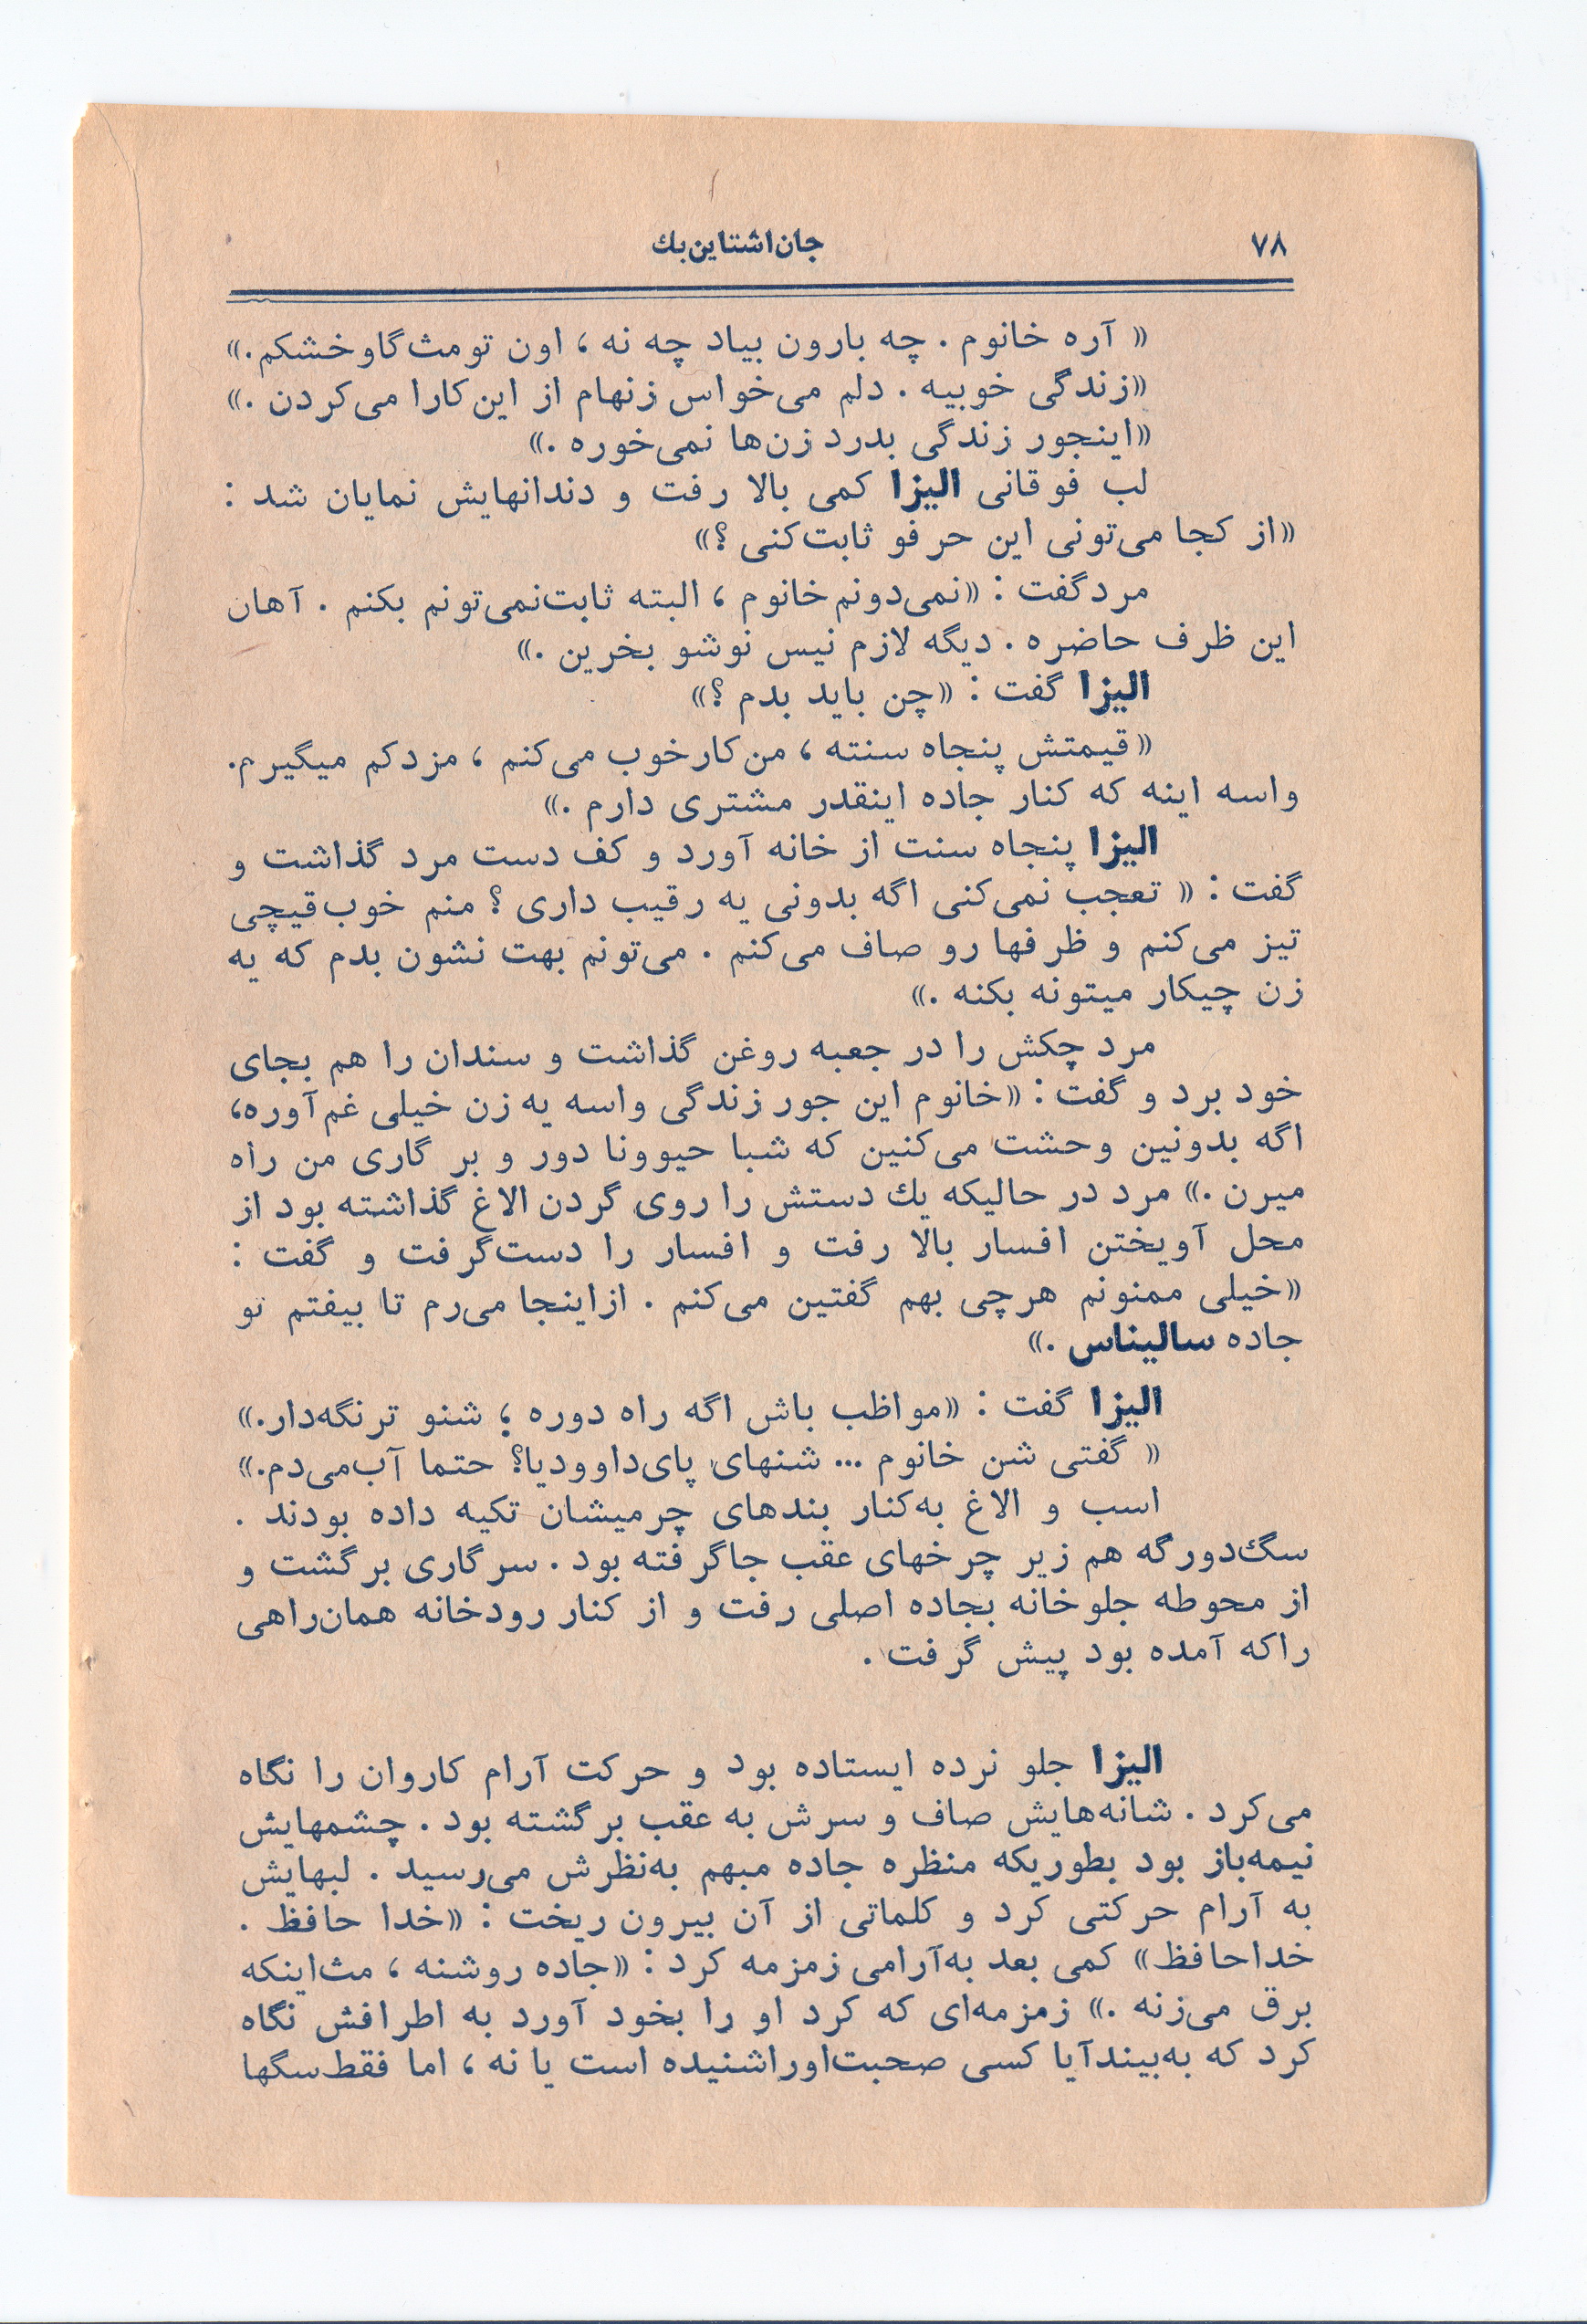 ۷۸
جان‌اشتاین‌بك
« آره خانوم . چه بارون بیاد چه نه ، اون تو مث گاو خشکم.»
«زندگی خوبیه . دلم می‌خواس زنهام از این کارا می‌کردن .»
«اینجور زندگی بدرد زن‌ها نمی‌خوره .»
لب فوقانی الیزا کمی بالا رفت و دندانهایش نمایان شد :
«از کجا می‌تونی این حرفو ثابت‌کنی ؟»
مرد گفت : «نمی‌دونم خانوم ، البته ثابت‌نمی‌تونم بکنم . آهان
این ظرف حاضره . دیگه لازم نیس نوشو بخرین .»
الیزا گفت : «چن باید بدم ؟»
«قیمتش پنجاه سنته ، من کار خوب می‌کنم ، مزد کم میگیرم.
واسه اینه که کنار جاده اینقدر مشتری دارم .»
الیزا پنجاه سنت از خانه آورد و کف دست مرد گذاشت و
گفت : « تعجب نمی‌کنی اگه بدونی یه رقیب داری ؟ منم خوب‌قیچی
تیز می‌کنم و ظرفها رو صاف می‌کنم . می‌تونم بهت نشون بدم که یه
زن چیکار میتونه بکنه .»
مرد چکش را در جعبه روغن گذاشت و سندان را هم بجای
خود برد و گفت : «خانوم این جور زندگی واسه یه زن خیلی غم‌آوره،
اگه بدونین وحشت می‌کنین که شبا حیوونا دور و بر گاری من راه
میرن .» مرد در حالیکه یك دستش را روی گردن الاغ گذاشته بود از
محل آویختن افسار بالا رفت و افسار را دست‌گرفت و گفت :
«خیلی ممنونم هرچی بهم گفتین می‌کنم . ازاینجا می‌رم تا بیفتم تو
جاده سالیناس .»
الیزا گفت : «مواظب باش اگه راه دوره ؛ شنو تر نگه‌دار.»
« گفتی شن خانوم ... شنهای پای‌داوودیا؟ حتما آب‌می‌دم.»
اسب و الاغ به‌کنار بندهای چرمیشان تکیه داده بودند .
سگ‌دورگه هم زیر چرخهای عقب جاگرفته بود . سر گاری برگشت و
از محوطه جلوخانه بجاده اصلی رفت و از کنار رودخانه همان‌راهی
راکه آمده بود پیش گرفت .
الیزا جلو نرده ایستاده بود و حرکت آرام کاروان را نگاه
می‌کرد . شانه‌هایش صاف و سرش به عقب برگشته بود . چشمهایش
نیمه‌باز بود بطوریکه منظره جاده مبهم به‌نظرش می‌رسید . لبهایش
به آرام حرکتی کرد و کلماتی از آن بیرون ریخت : «خدا حافظ .
خداحافظ» کمی بعد به‌آرامی زمزمه کرد : «جاده روشنه ، مث‌اینکه
برق می‌زنه .» زمزمه‌ای که کرد او را بخود آورد به اطرافش نگاه
کرد که به‌بیندآیا کسی صحبت‌اوراشنیده است یا نه ، اما فقط‌سگها